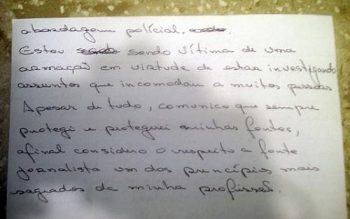 abordagem policial.
Estou sendo vítima de uma
armação em virtude de estar investigando
assuntos que incomodam a muitas pessoas
Apesar de tudo, comunico que sempre
protegi e protegerei minhas fontes,
afinal considero o respeito a fonte
jornalista um dos princípios mais
sagrados da minha profissão.